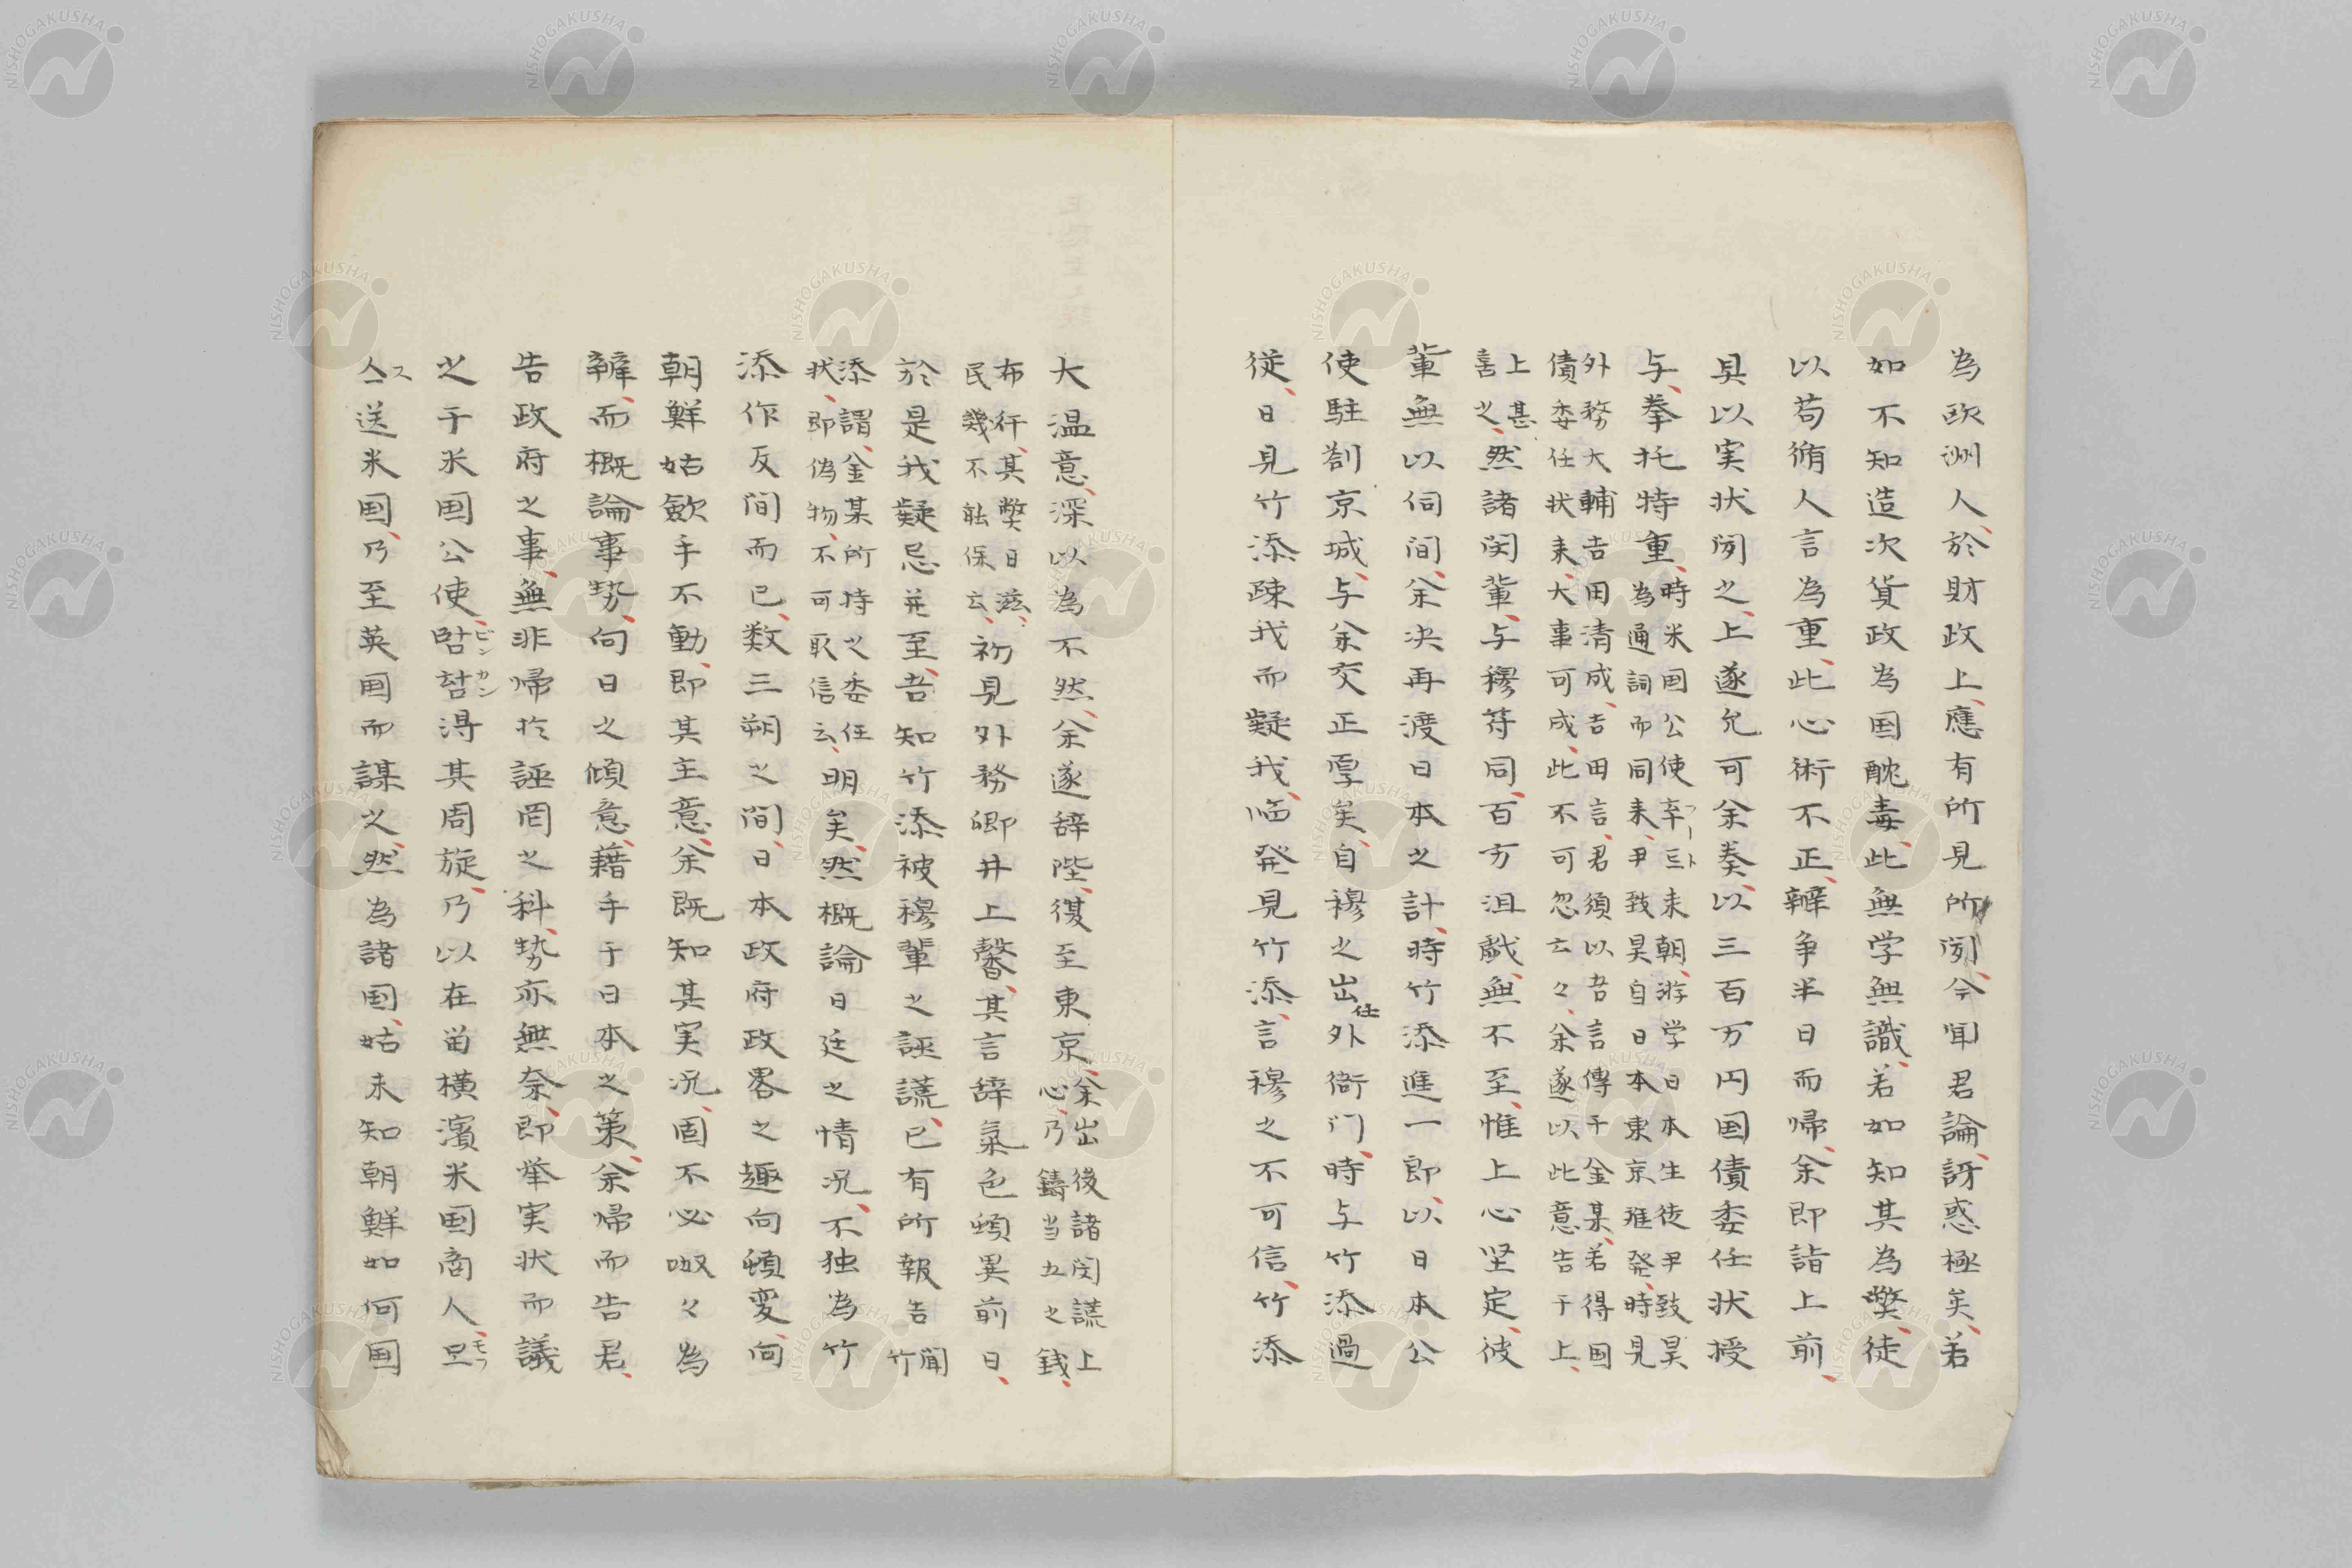 為欧洲人、於財政上、應有所見所聞、今聞君論、訝惑極矣、若
如不知造次貨政為国酖毒、此無学無識、若如知其為弊、徒
以苟循人言為重、此心術不正、辧争半日而帰、余即詣上前、
具以実状聞之、上遂允可余奏、以三百万円国債委任状授
与、拳托特重、時米国公使卒フート来朝、游学日本生徒尹致昊
為通詞而同来、尹致昊自日本東京准発、時見
外務大輔吉田清成、吉田言、君須以吾言傳于金某、若得国
債委任状来、大事可成、此不可忽云々、余遂以此意告于上、
上甚
喜之、然諸閔輩、与穆符同、百方沮戯、無不至、惟上心坚定、彼
輩無以伺间、余决再渡日本之計、時竹添進一即、以日本公
使駐劄京城、与余交正厚矣、自穆之出仕外衙门、時与竹添過
従、日見竹添踈我而疑我、临発見竹添、言穆之不可信、竹添
大温意、深以為不然、余遂辞陛、復至東京、余出後諸閔謊上
心、乃鑄当五之銭、
布行、其弊日滋、
民幾不能保云、初見外務卿井上馨、其言辞氣色頓異前日、
於是我疑忌并至、吾知竹添被穆輩之誣謊、已有所報告聞竹
添謂、金某所持之委任
状、即偽物、不可取信云、明矣、然概論日廷之情况、不独為竹
添作反间而已、数三朔之间、日本政府政畧之趣向頓変、向
朝鮮姑歛手不動、即其主意、余既知其実况、固不必呶々為
辧、而概論事势、向日之傾意、藉手于日本之策、余帰而告君、
告政府之事、無非帰於誣罔之科、势亦無奈、即挙実状而議
之于米国公使、ビンカン得其周旋、乃以在留横濱米国商人、モフ
ス送米国、乃至英国而謀之、然為諸国、姑未知朝鮮如何国